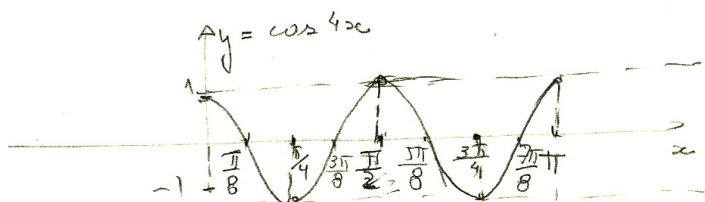 y = cos 4x
1
π/8 π/4 3π/8 π/2 5π/8 3π/4 7π/8 π
x
-1